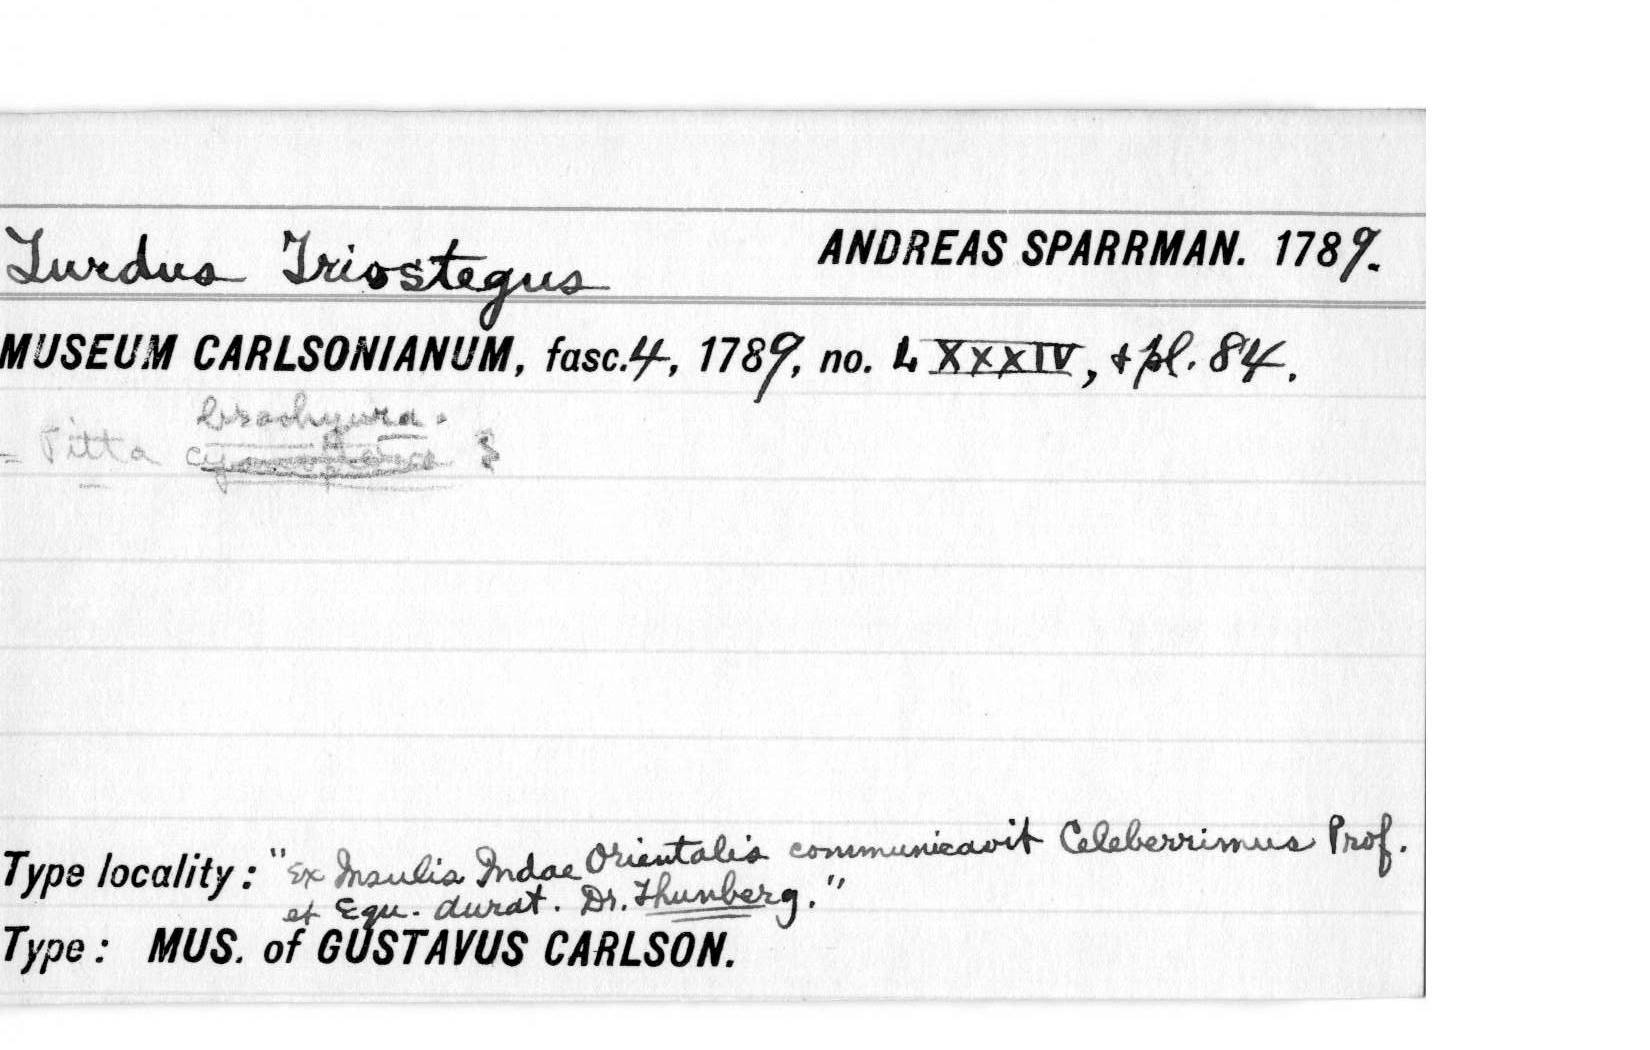 Turdus Triostegus ANDREAS SPARRMAN. 1789.
MUSEUM CARLSONIANUM, fasc. 4, 1789, no. LXXXIV, + pl. 84.
brachyura.
= Pitta
Type locality: "Ex Insulis Indae Orientalis communicavit Celeberrimus Prof.
et Equ. aurat. Dr. Thunberg."
Type: MUS. of GUSTAVUS CARLSON.